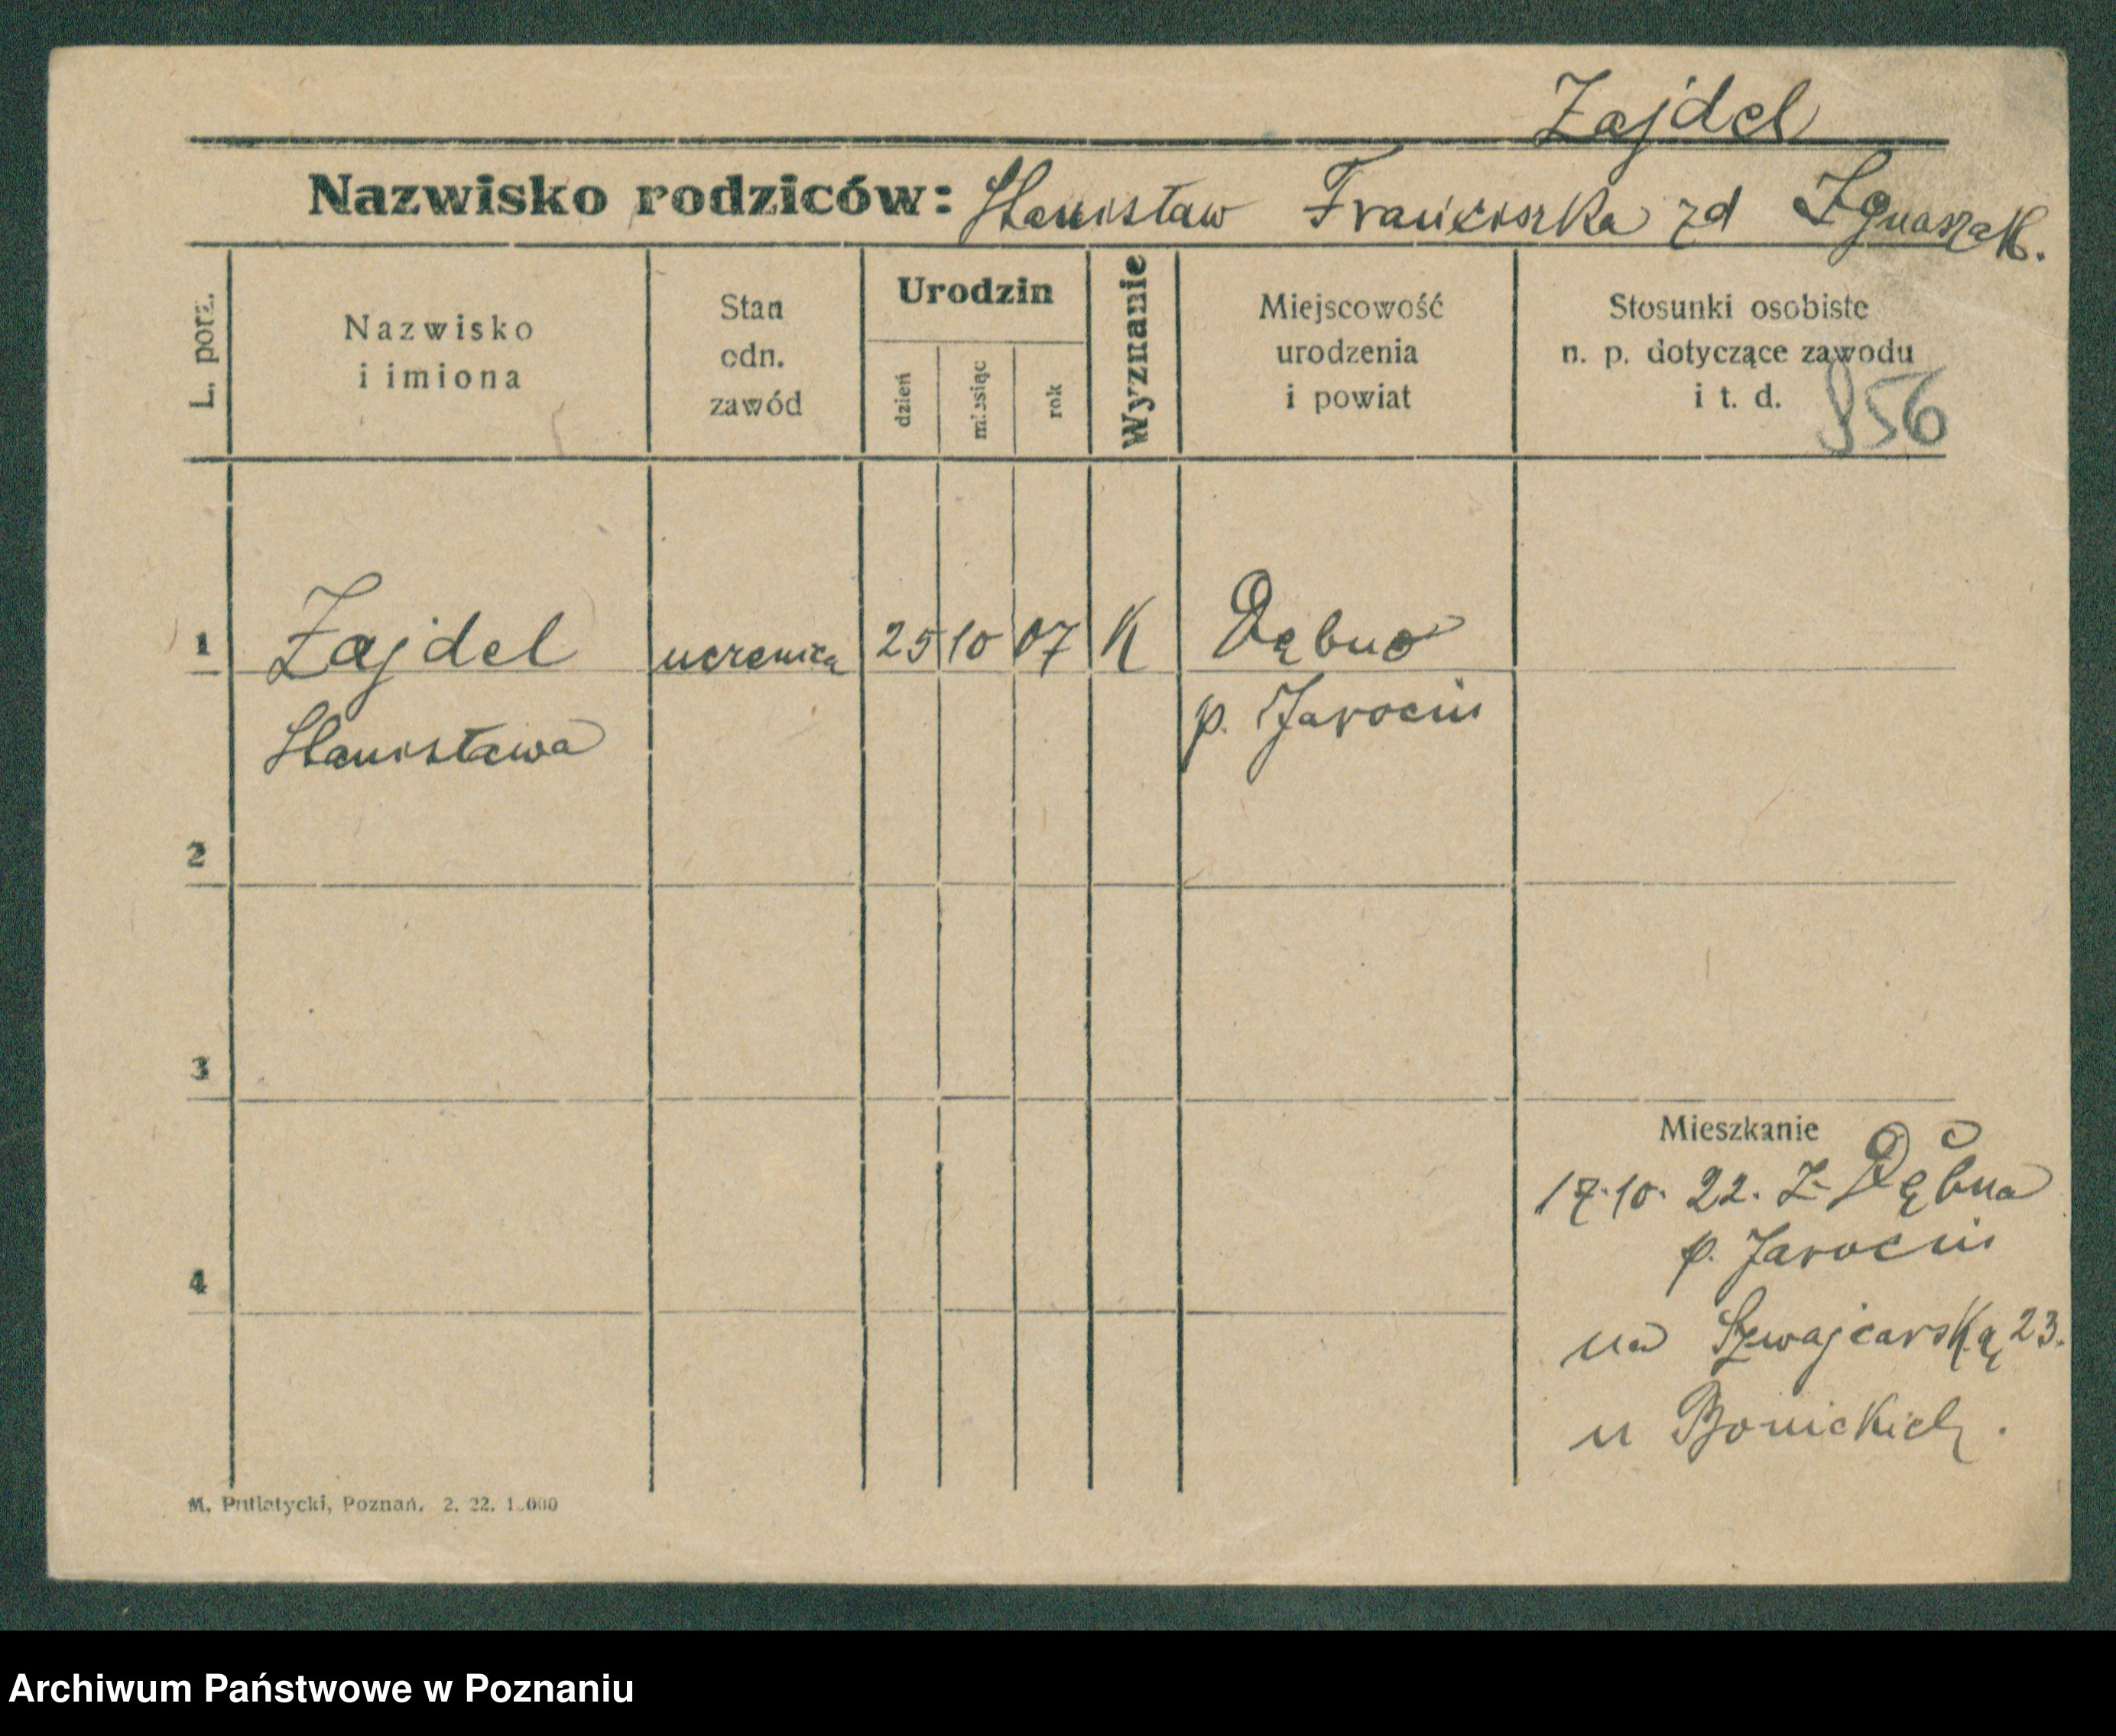 Zajdel
Nazwisko rodziców: Stanisław Franciszka zd Ignaszak.
L. porz.
Nazwisko
i imiona
Stan
odn.
zawód
Urodzin
dzień
miesiąc
rok
Wyznanie
Miejscowość
urodzenia
i powiat
Stosunki osobiste
n. p. dotyczące zawodu
i t. d.
956
1 Zajdel uczenica 25 10 07 K Dębno
Stanisława p. Jarocin
2
3
Mieszkanie
17.10. 22. Z Dębna
p. Jarocin
4
na Szwajcarską 23.
u Bonickich.
M. Putiatycki, Poznań. 2. 22. 1.000
Archiwum Państwowe w Poznaniu